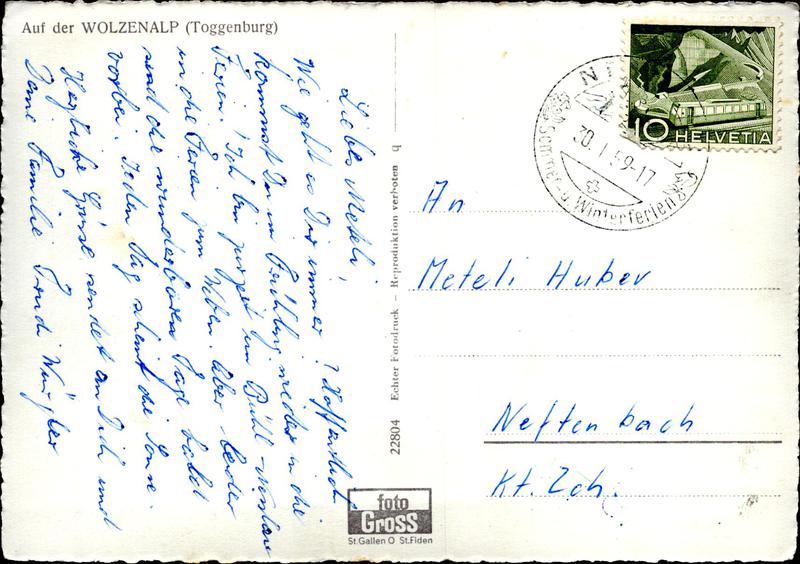 Auf der WOLZENALP (Toggenburg)
Liebs Meteli,
Wie geht es Dir immer? Hoffentlich
kommst Du im Frühling wieder in die
Ferien. Ich bin zurzeit im Bühl-Nesslau
in die Ferien zum Üben. Aber leider
sind die wunderbaren Tage bald
vorbei. Jeden Tag scheint die Sonne.
Herzliche Grüsse sendet an Dich und
Deine Familie Trudi
22804 Echter Fotodruck — Reproduktion verboten q
foto
Gross
St.Gallen O St.Fiden
30.I.59-17
Winterferien
10 HELVETIA
An
Meteli Huber
Neftenbach
Kt. Zch.